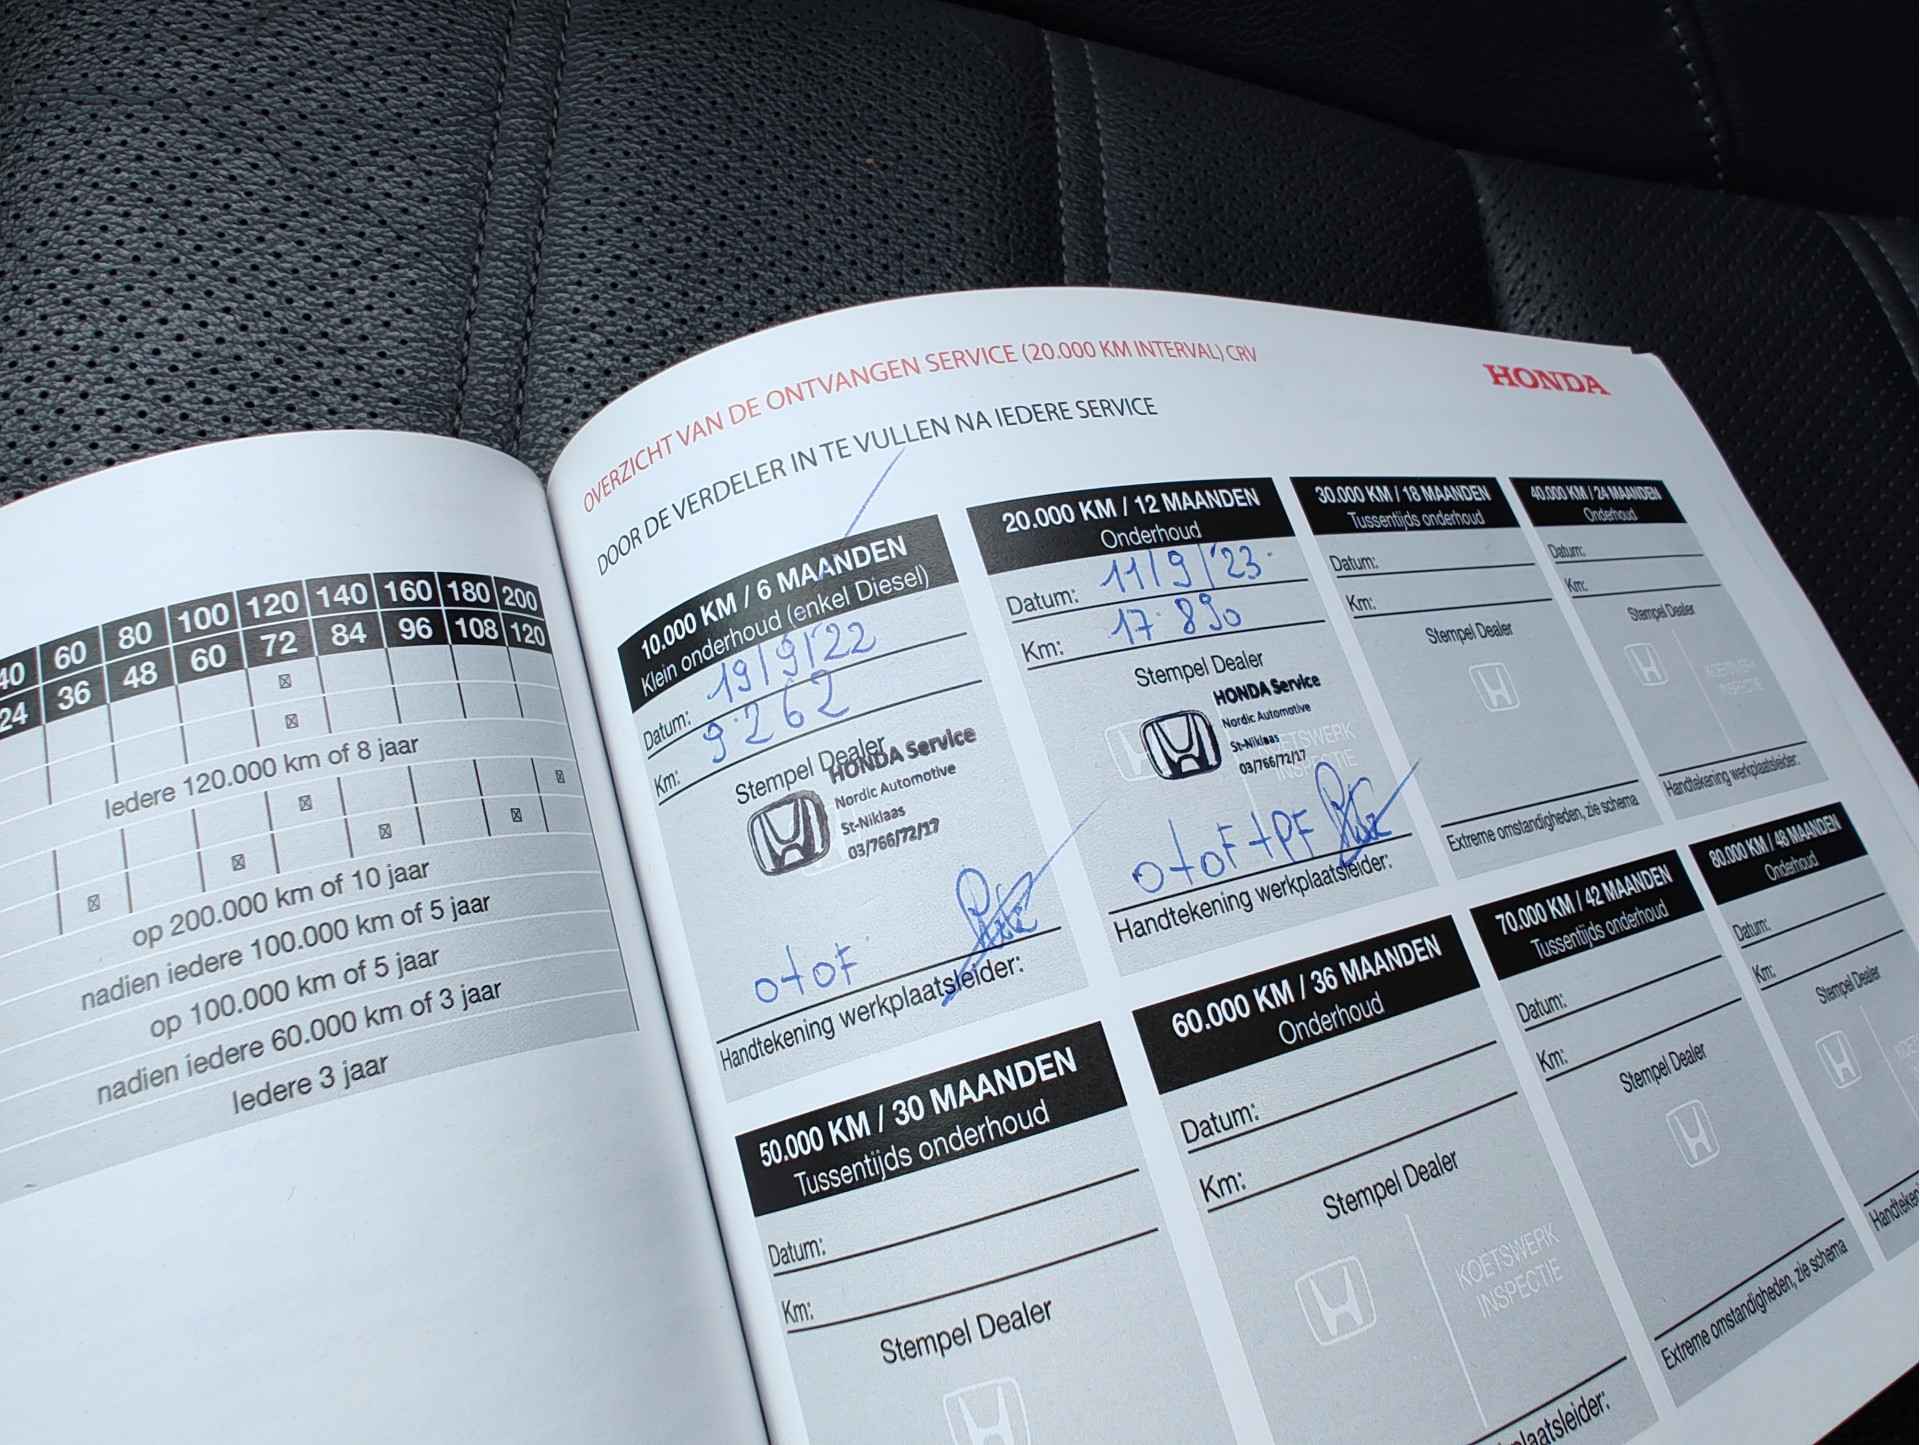 40 60 80 100 120 140 160 180 200
24 36 48 60 72 84 96 108 120
Iedere 120.000 km of 8 jaar
op 200.000 km of 10 jaar
nadien iedere 100.000 km of 5 jaar
op 100.000 km of 5 jaar
nadien iedere 60.000 km of 3 jaar
Iedere 3 jaar
OVERZICHT VAN DE ONTVANGEN SERVICE (20.000 KM INTERVAL) CRV
HONDA
DOOR DE VERDELER IN TE VULLEN NA IEDERE SERVICE
10.000 KM / 6 MAANDEN
Klein onderhoud (enkel Diesel)
Datum: 19/9/22
Km: 9.262
Stempel Dealer
HONDA Service
Nordic Automotive
St-Niklaas
03/766/72/17
o+oF
Handtekening werkplaatsleider:
20.000 KM / 12 MAANDEN
Onderhoud
Datum: 11/9/'23
Km: 17.890
Stempel Dealer
HONDA Service
Nordic Automotive
St-Niklaas
03/766/72/17
KOETSWERK
INSPECTIE
o+oF+PF
Handtekening werkplaatsleider:
30.000 KM / 18 MAANDEN
Tussentijds onderhoud
Datum:
Km:
Stempel Dealer
Extreme omstandigheden, zie schema
40.000 KM / 24 MAANDEN
Onderhoud
Datum:
Km:
Stempel Dealer
KOETSWERK
INSPECTIE
Handtekening werkplaatsleider:
50.000 KM / 30 MAANDEN
Tussentijds onderhoud
Datum:
Km:
Stempel Dealer
60.000 KM / 36 MAANDEN
Onderhoud
Datum:
Km:
Stempel Dealer
KOETSWERK
INSPECTIE
plaatsleider:
70.000 KM / 42 MAANDEN
Tussentijds onderhoud
Datum:
Km:
Stempel Dealer
Extreme omstandigheden, zie schema
80.000 KM / 48 MAANDEN
Onderhoud
Datum:
Km:
Stempel Dealer